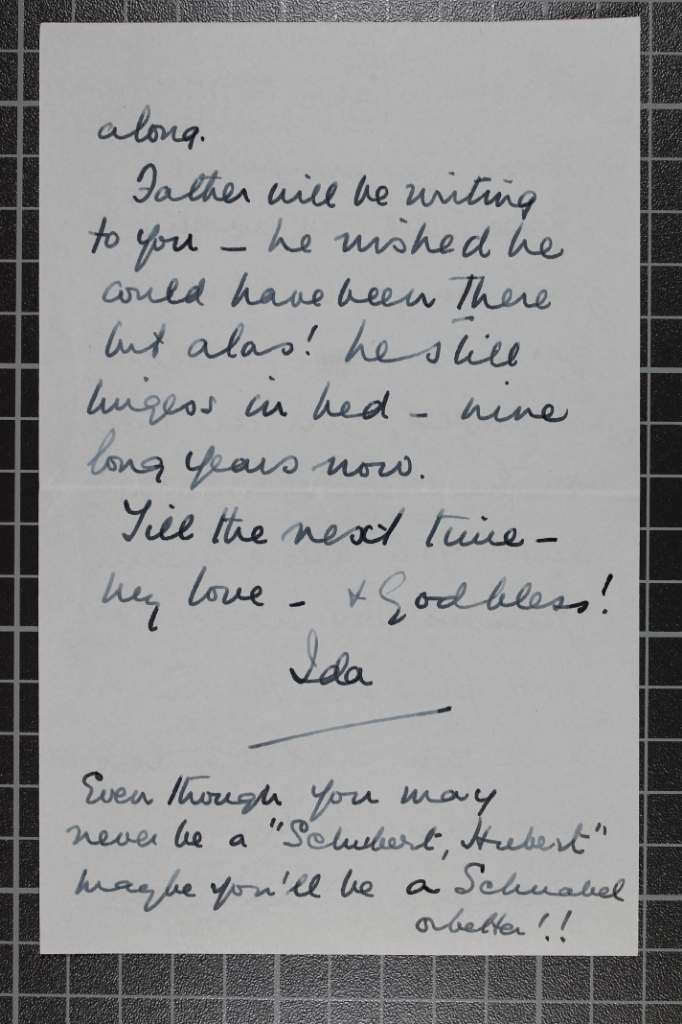 along.
Father will be writing
to you – he wished he
could have been there
but alas! he still
lingers in bed – nine
long years now.
Till the next time –
my love – & God bless!
Ida
Even though you may
never be a "Schubert, Hubert"
maybe you'll be a Schnabel
or better!!